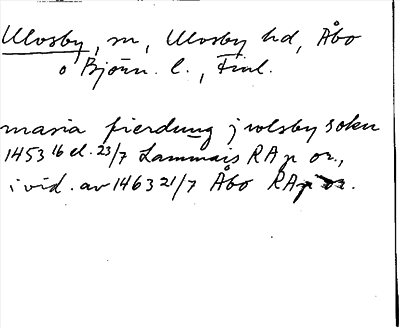 Ulvsby, sn, Ulvsby hd, Åbo
o Björn. l., Finl.
masia fierdung j wlsby sokn
1453 16 el. 23/7 Lammais RAp or.,
i vid. av 1463 21/7 Åbo RAp or.